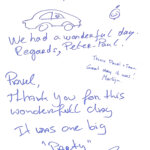 We had a wonderful day.
Regards, Peter-Paul.
Great day it was!
Pavel,
Thank you for this
wonderfull day
It was one big
"Party"